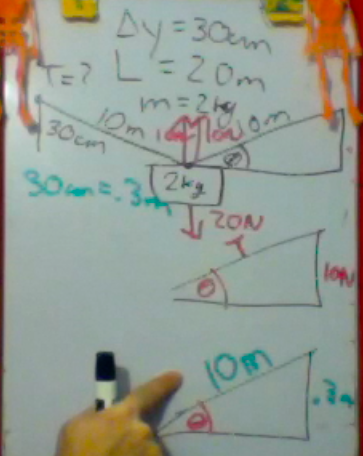 Δy = 30cm
L = 20m
T = ?
m = 2kg
10m
10N
10m
30cm
θ
30cm = .3m
2kg
20N
T
θ
10N
10m
θ